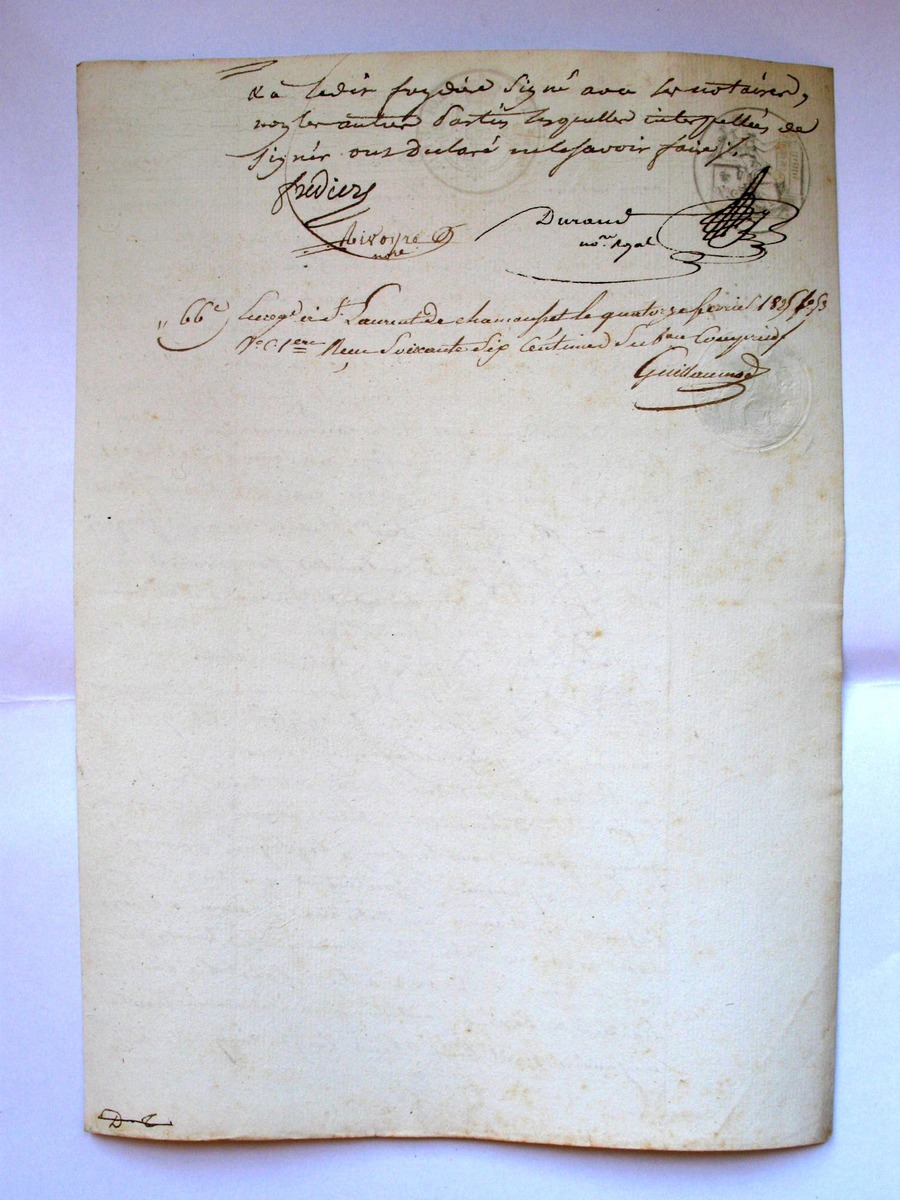 & a ledit freydier signé avec les notaires,
non les autres parties lesquelles interpellées de
signer ont declaré ne le savoir faire ./.
frediers
Durand
no.re Royal
nore
66c Enregé à St Laurent de chamousset le quatorze fevrier fo 53
Vo C. 1ere Reçu Soixante Six Centimes Subon Compris
Guillaumod